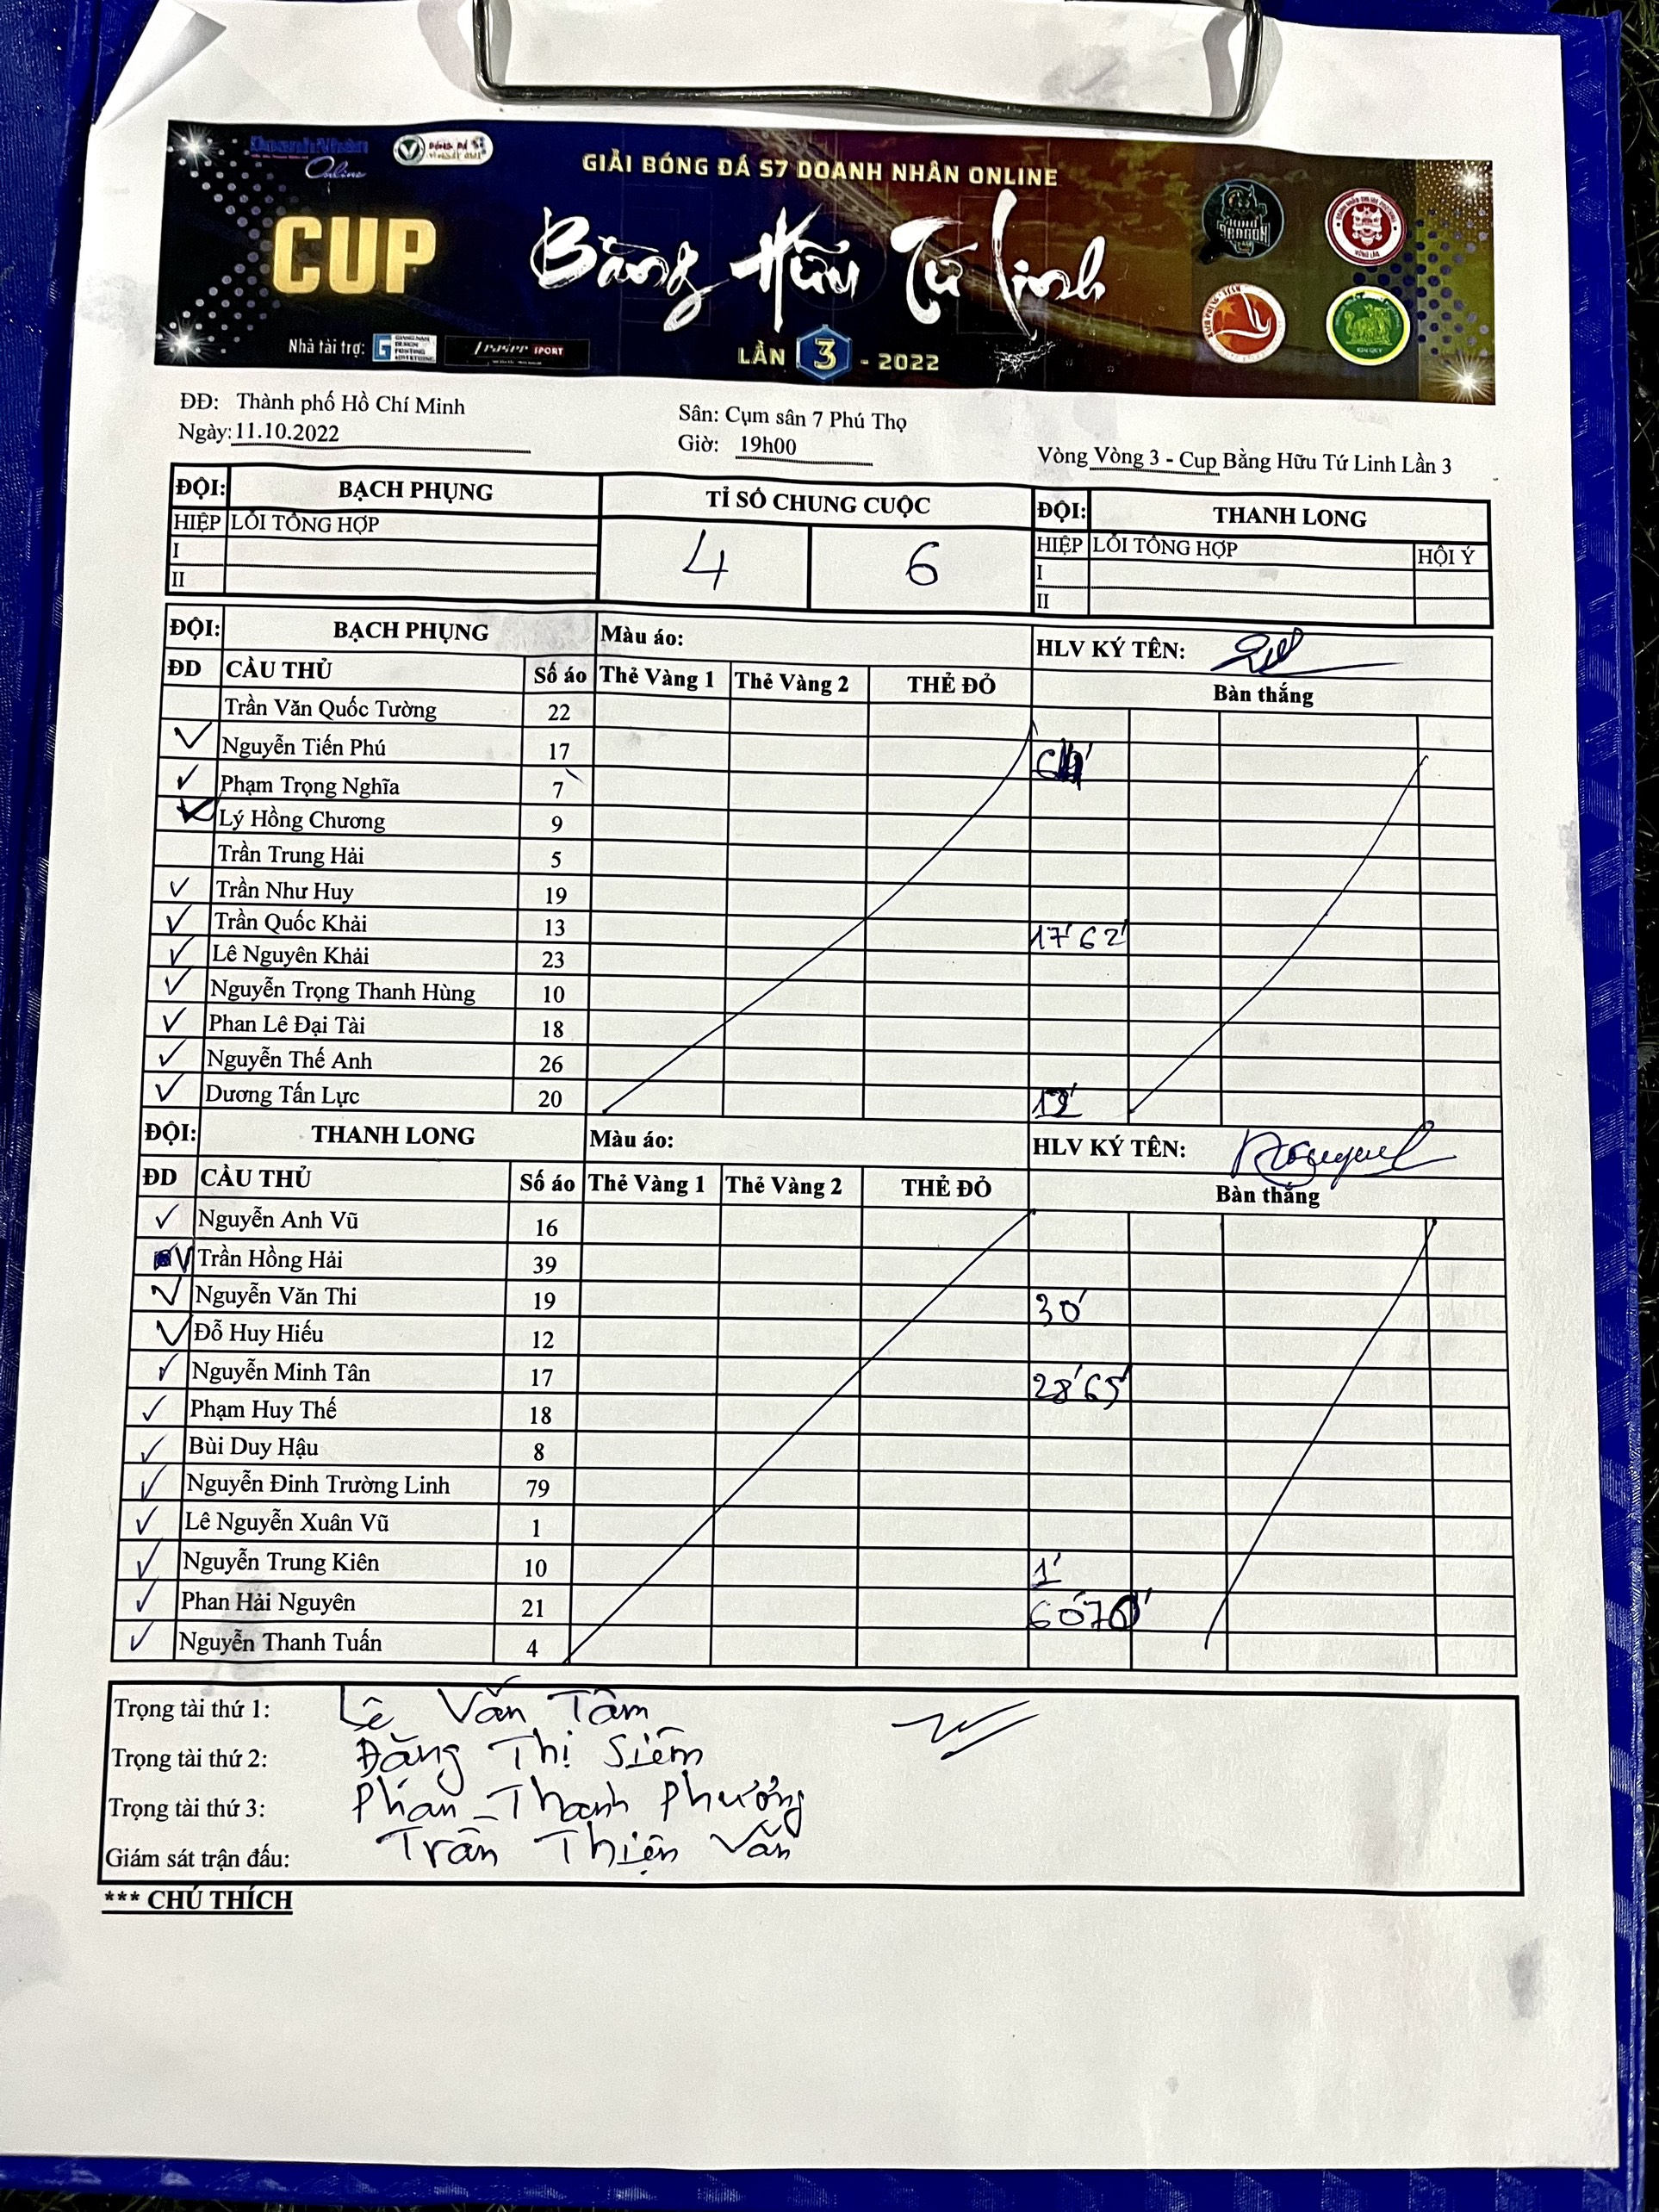 DoanhNhân
Online
GIẢI BÓNG ĐÁ S7 DOANH NHÂN ONLINE
CUP
Bằng Hữu Tứ Linh
Nhà tài trợ:
SPORT
LẦN 3 - 2022
ĐĐ: Thành phố Hồ Chí Minh
Sân: Cụm sân 7 Phú Thọ
Ngày: 11.10.2022
Giờ: 19h00
Vòng Vòng 3 - Cup Bằng Hữu Tứ Linh Lần 3
ĐỘI: BẠCH PHỤNG TỈ SỐ CHUNG CUỘC ĐỘI: THANH LONG
HIỆP LỖI TỔNG HỢP 4 6 HIỆP LỖI TỔNG HỢP HỘI Ý
I I
II II
ĐỘI: BẠCH PHỤNG Màu áo: HLV KÝ TÊN:
ĐD CẦU THỦ Số áo Thẻ Vàng 1 Thẻ Vàng 2 THẺ ĐỎ Bàn thắng
Trần Văn Quốc Tường 22
Nguyễn Tiến Phú 17
Phạm Trọng Nghĩa 7
Lý Hồng Chương 9
Trần Trung Hải 5
Trần Như Huy 19
Trần Quốc Khải 13 17' 62'
Lê Nguyên Khải 23
Nguyễn Trọng Thanh Hùng 10
Phan Lê Đại Tài 18
Nguyễn Thế Anh 26
Dương Tấn Lực 20
ĐỘI: THANH LONG Màu áo: HLV KÝ TÊN:
ĐD CẦU THỦ Số áo Thẻ Vàng 1 Thẻ Vàng 2 THẺ ĐỎ Bàn thắng
Nguyễn Anh Vũ 16
Trần Hồng Hải 39
Nguyễn Văn Thi 19 30'
Đỗ Huy Hiếu 12
Nguyễn Minh Tân 17 28' 65'
Phạm Huy Thế 18
Bùi Duy Hậu 8
Nguyễn Đinh Trường Linh 79
Lê Nguyễn Xuân Vũ 1
Nguyễn Trung Kiên 10 1'
Phan Hải Nguyên 21 60' 70'
Nguyễn Thanh Tuấn 4
Trọng tài thứ 1: Lê Văn Tâm
Trọng tài thứ 2: Đặng Thị Siêm
Trọng tài thứ 3: Phan Thanh Phương
Giám sát trận đấu: Trần Thiện Văn
*** CHÚ THÍCH